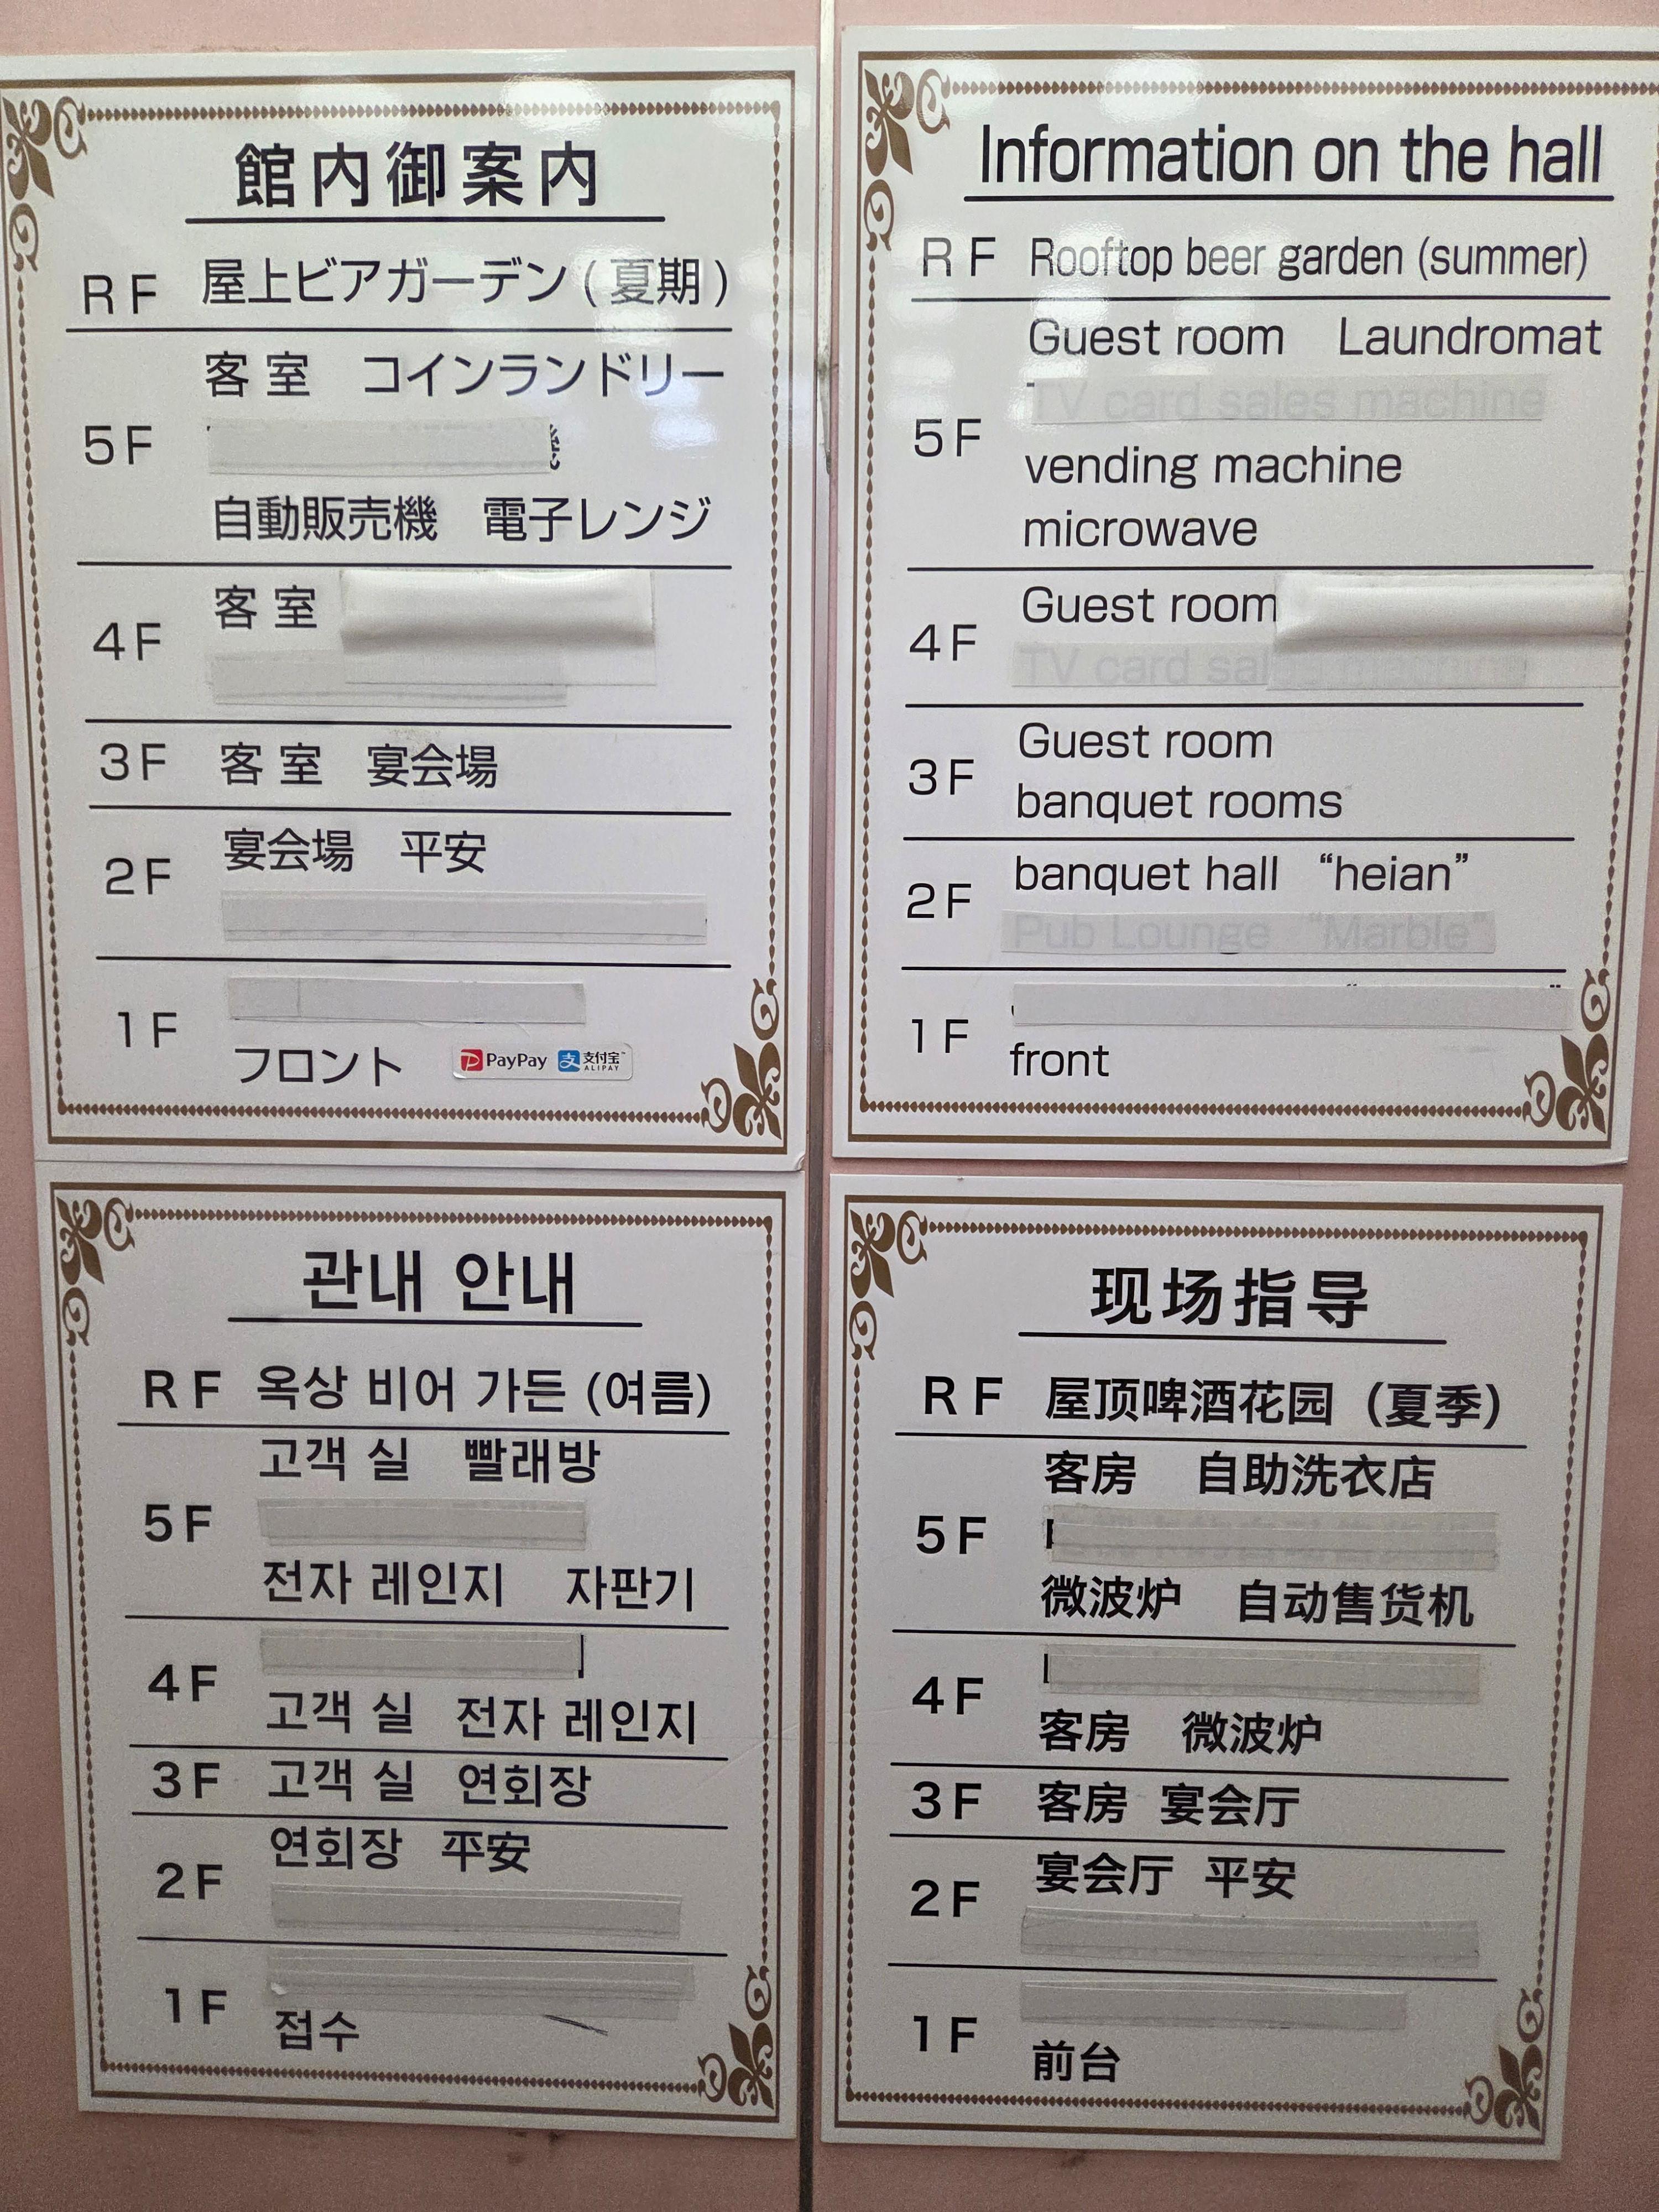 館内御案内
RF 屋上ビアガーデン(夏期)
客室 コインランドリー
5F
自動販売機 電子レンジ
客室
4F
3F 客室 宴会場
宴会場 平安
2F
1F
フロント PayPay 支付宝 ALIPAY
Information on the hall
RF Rooftop beer garden (summer)
Guest room Laundromat
TV card sales machine
5F
vending machine
microwave
Guest room
4F
TV card sales machine
Guest room
3F
banquet rooms
banquet hall “heian”
2F
Pub Lounge “Marble”
1F
front
관내 안내
RF 옥상 비어 가든 (여름)
고객 실 빨래방
5F
전자 레인지 자판기
4F
고객 실 전자 레인지
3F 고객 실 연회장
연회장 平安
2F
1F
접수
现场指导
RF 屋顶啤酒花园（夏季）
客房 自助洗衣店
5F
微波炉 自动售货机
4F
客房 微波炉
3F 客房 宴会厅
宴会厅 平安
2F
1F
前台